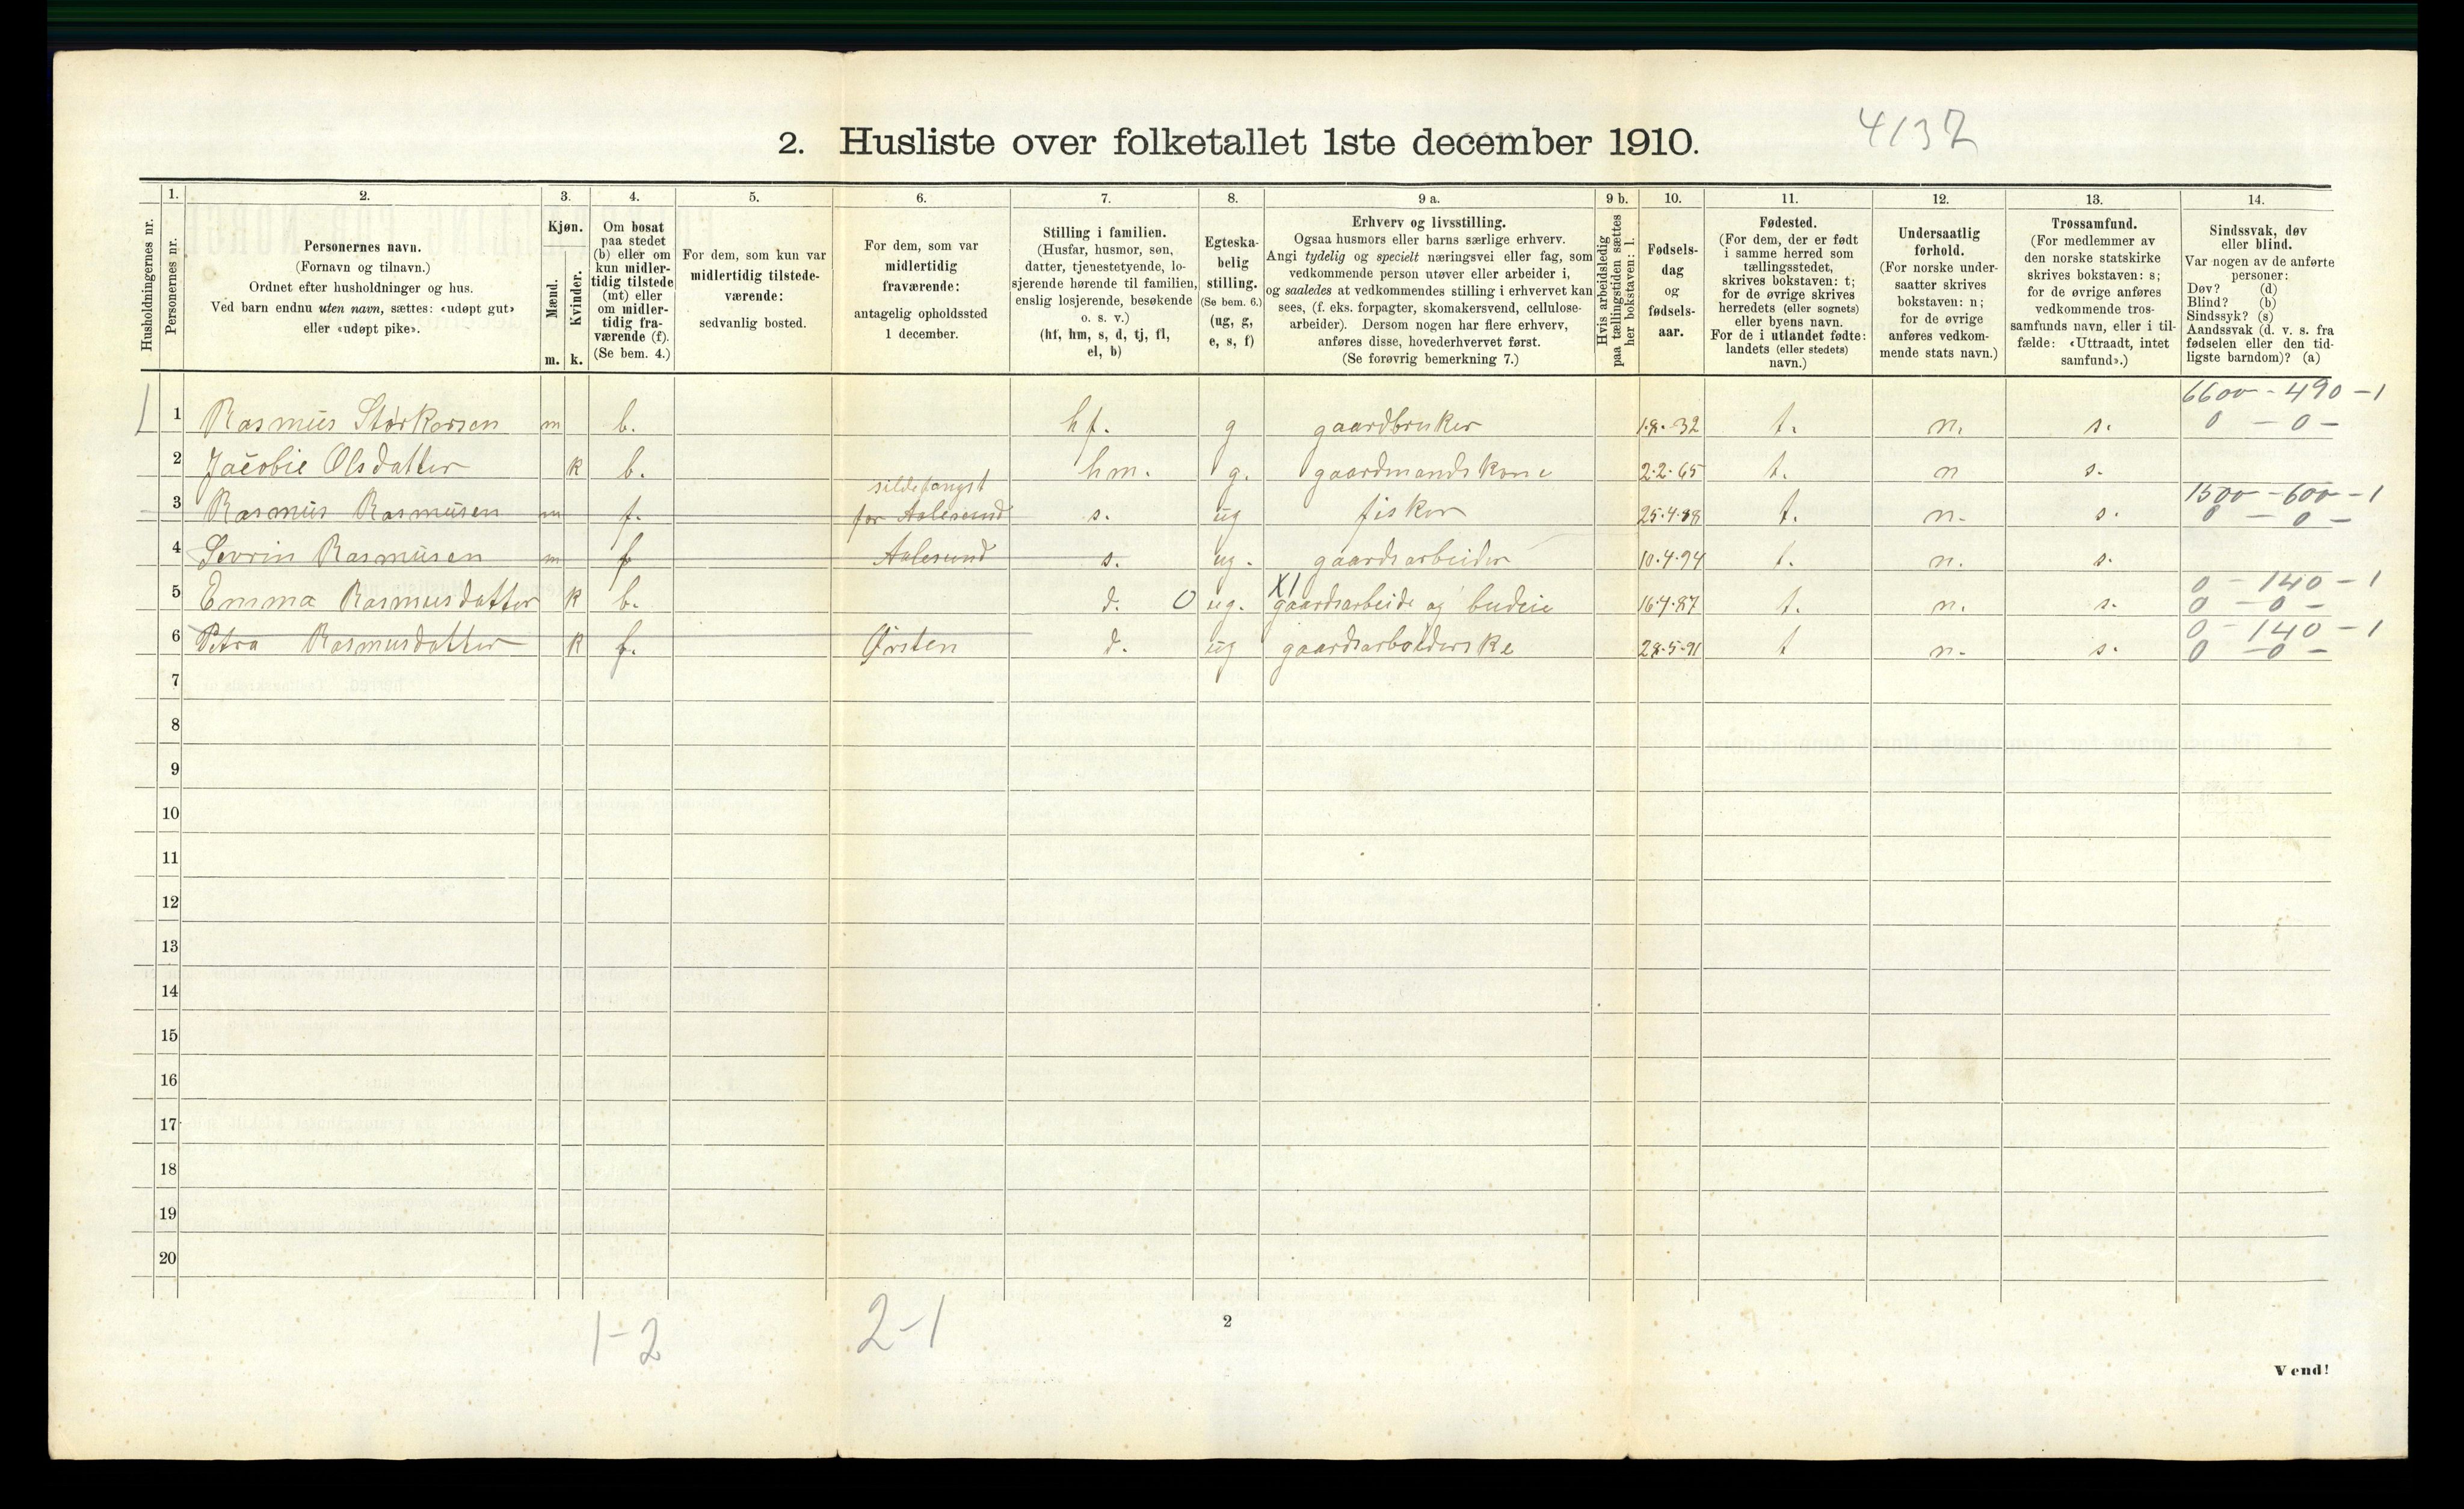 2. Husliste over folketallet 1ste december 1910.
4137
Husholdningernes nr.
1. Personernes nr.
2.
Personernes navn.
(Fornavn og tilnavn.)
Ordnet efter husholdninger og hus.
Ved barn endnu uten navn, sættes: «udøpt gut»
eller «udøpt pike».
3.
Kjøn.
Mænd. m.
Kvinder. k.
4.
Om bosat
paa stedet
(b) eller om
kun midler-
tidig tilstede
(mt) eller
om midler-
tidig fra-
værende (f).
(Se bem. 4.)
5.
For dem, som kun var
midlertidig tilstede-
værende:
sedvanlig bosted.
6.
For dem, som var
midlertidig
fraværende:
antagelig opholdssted
1 december.
7.
Stilling i familien.
(Husfar, husmor, søn,
datter, tjenestetyende, lo-
sjerende hørende til familien,
enslig losjerende, besøkende
o. s. v.)
(hf, hm, s, d, tj, fl,
el, b)
8.
Egteska-
belig
stilling.
(Se bem. 6.)
(ug, g,
e, s, f)
9 a.
Erhverv og livsstilling.
Ogsaa husmors eller barns særlige erhverv.
Angi tydelig og specielt næringsvei eller fag, som
vedkommende person utøver eller arbeider i,
og saaledes at vedkommendes stilling i erhvervet kan
sees, (f. eks. forpagter, skomakersvend, cellulose-
arbeider). Dersom nogen har flere erhverv,
anføres disse, hovederhvervet først.
(Se forøvrig bemerkning 7.)
9 b.
Hvis arbeidsledig
paa tællingstiden sættes
her bokstaven: l.
10.
Fødsels-
dag
og
fødsels-
aar.
11.
Fødested.
(For dem, der er født
i samme herred som
tællingsstedet,
skrives bokstaven: t;
for de øvrige skrives
herredets (eller sognets)
eller byens navn.
For de i utlandet fødte:
landets (eller stedets)
navn.)
12.
Undersaatlig
forhold.
(For norske under-
saatter skrives
bokstaven: n;
for de øvrige
anføres vedkom-
mende stats navn.)
13.
Trossamfund.
(For medlemmer av
den norske statskirke
skrives bokstaven: s;
for de øvrige anføres
vedkommende tros-
samfunds navn, eller i til-
fælde: «Uttraadt, intet
samfund».)
14.
Sindssvak, døv
eller blind.
Var nogen av de anførte
personer:
Døv? (d)
Blind? (b)
Sindssyk? (s)
Aandssvak (d. v. s. fra
fødselen eller den tid-
ligste barndom)? (a)
6600 - 490 - 1
1 1 Rasmus Størkersen m b. hf. g gaardbruker 1.8.32 t. n. s. 0 - 0 -
2 Jacobie Olsdatter k b. hm. g. gaardmandskone 2.2.65 t. n s.
sildefangst 1500 - 600 - 1
3 Rasmus Rasmusen m f. for Aalesund s. ug fisker 25.4.88 t. n. s. 0 - 0 -
4 Sevrin Rasmusen m f Aalesund s. ug. gaardsarbeider 10.4.94 t. n. s.
X1 0 - 140 - 1
5 Emma Rasmusdatter k b. d. 0 ug. gaardsarbeide og budeie 16.4.87 t. n. s. 0 - 0 -
0 - 140 - 1
6 Petra Rasmusdatter k f. Ørsten d. ug gaardsarbeiderske 28.5.91 t n. s. 0 - 0 -
7
8
9
10
11
12
13
14
15
16
17
18
19
20
1-2 2-1
2
Vend!